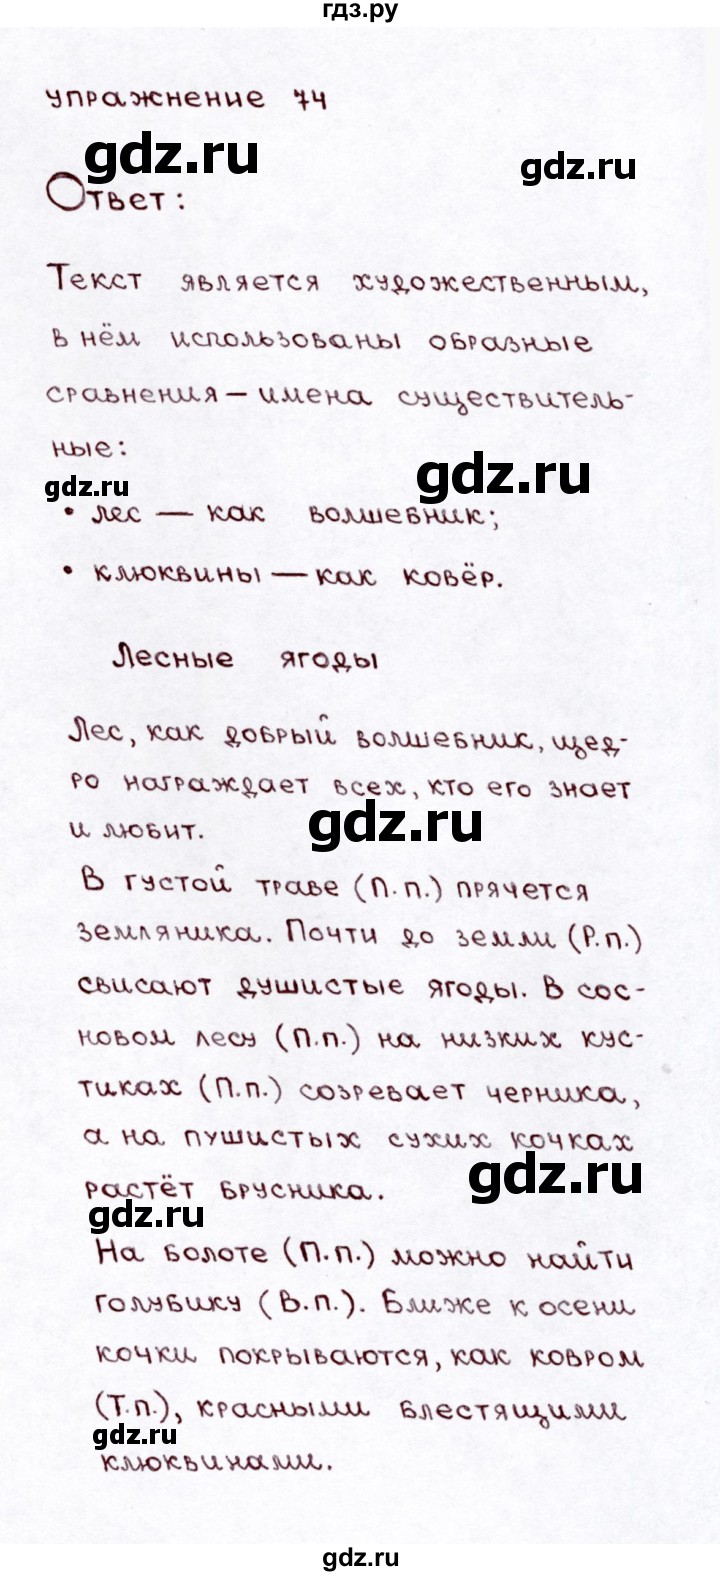 гдз.ру
упражнение 74
gdz.ru
gdz.ru
Ответ:
Текст является художественным,
в нём использованы образные
сравнения – имена существитель-
ные:
gdz.ru
gdz.ru
• лес — как волшебник;
• клюквины — как ковёр.
Лесные ягоды
Лес, как добрый волшебник, щед-
ро награждает всех, кто его знает
и любит.
gdz.ru
В густой траве (П.п.) прячется
земляника. Почти до земли (Р.п.)
свисают душистые ягоды. В сос-
новом лесу (П.п.) на низких кус-
тиках (П.п.) созревает черника,
а на пушистых сухих кочках
растёт брусника.
gdz.ru
gdz.ru
На болоте (П.п.) можно найти
голубику (В.п.). Ближе к осени
кочки покрываются, как ковром
(Т.п.), красными блестящими
gdz.ru
клюквинами.
gdz.ru